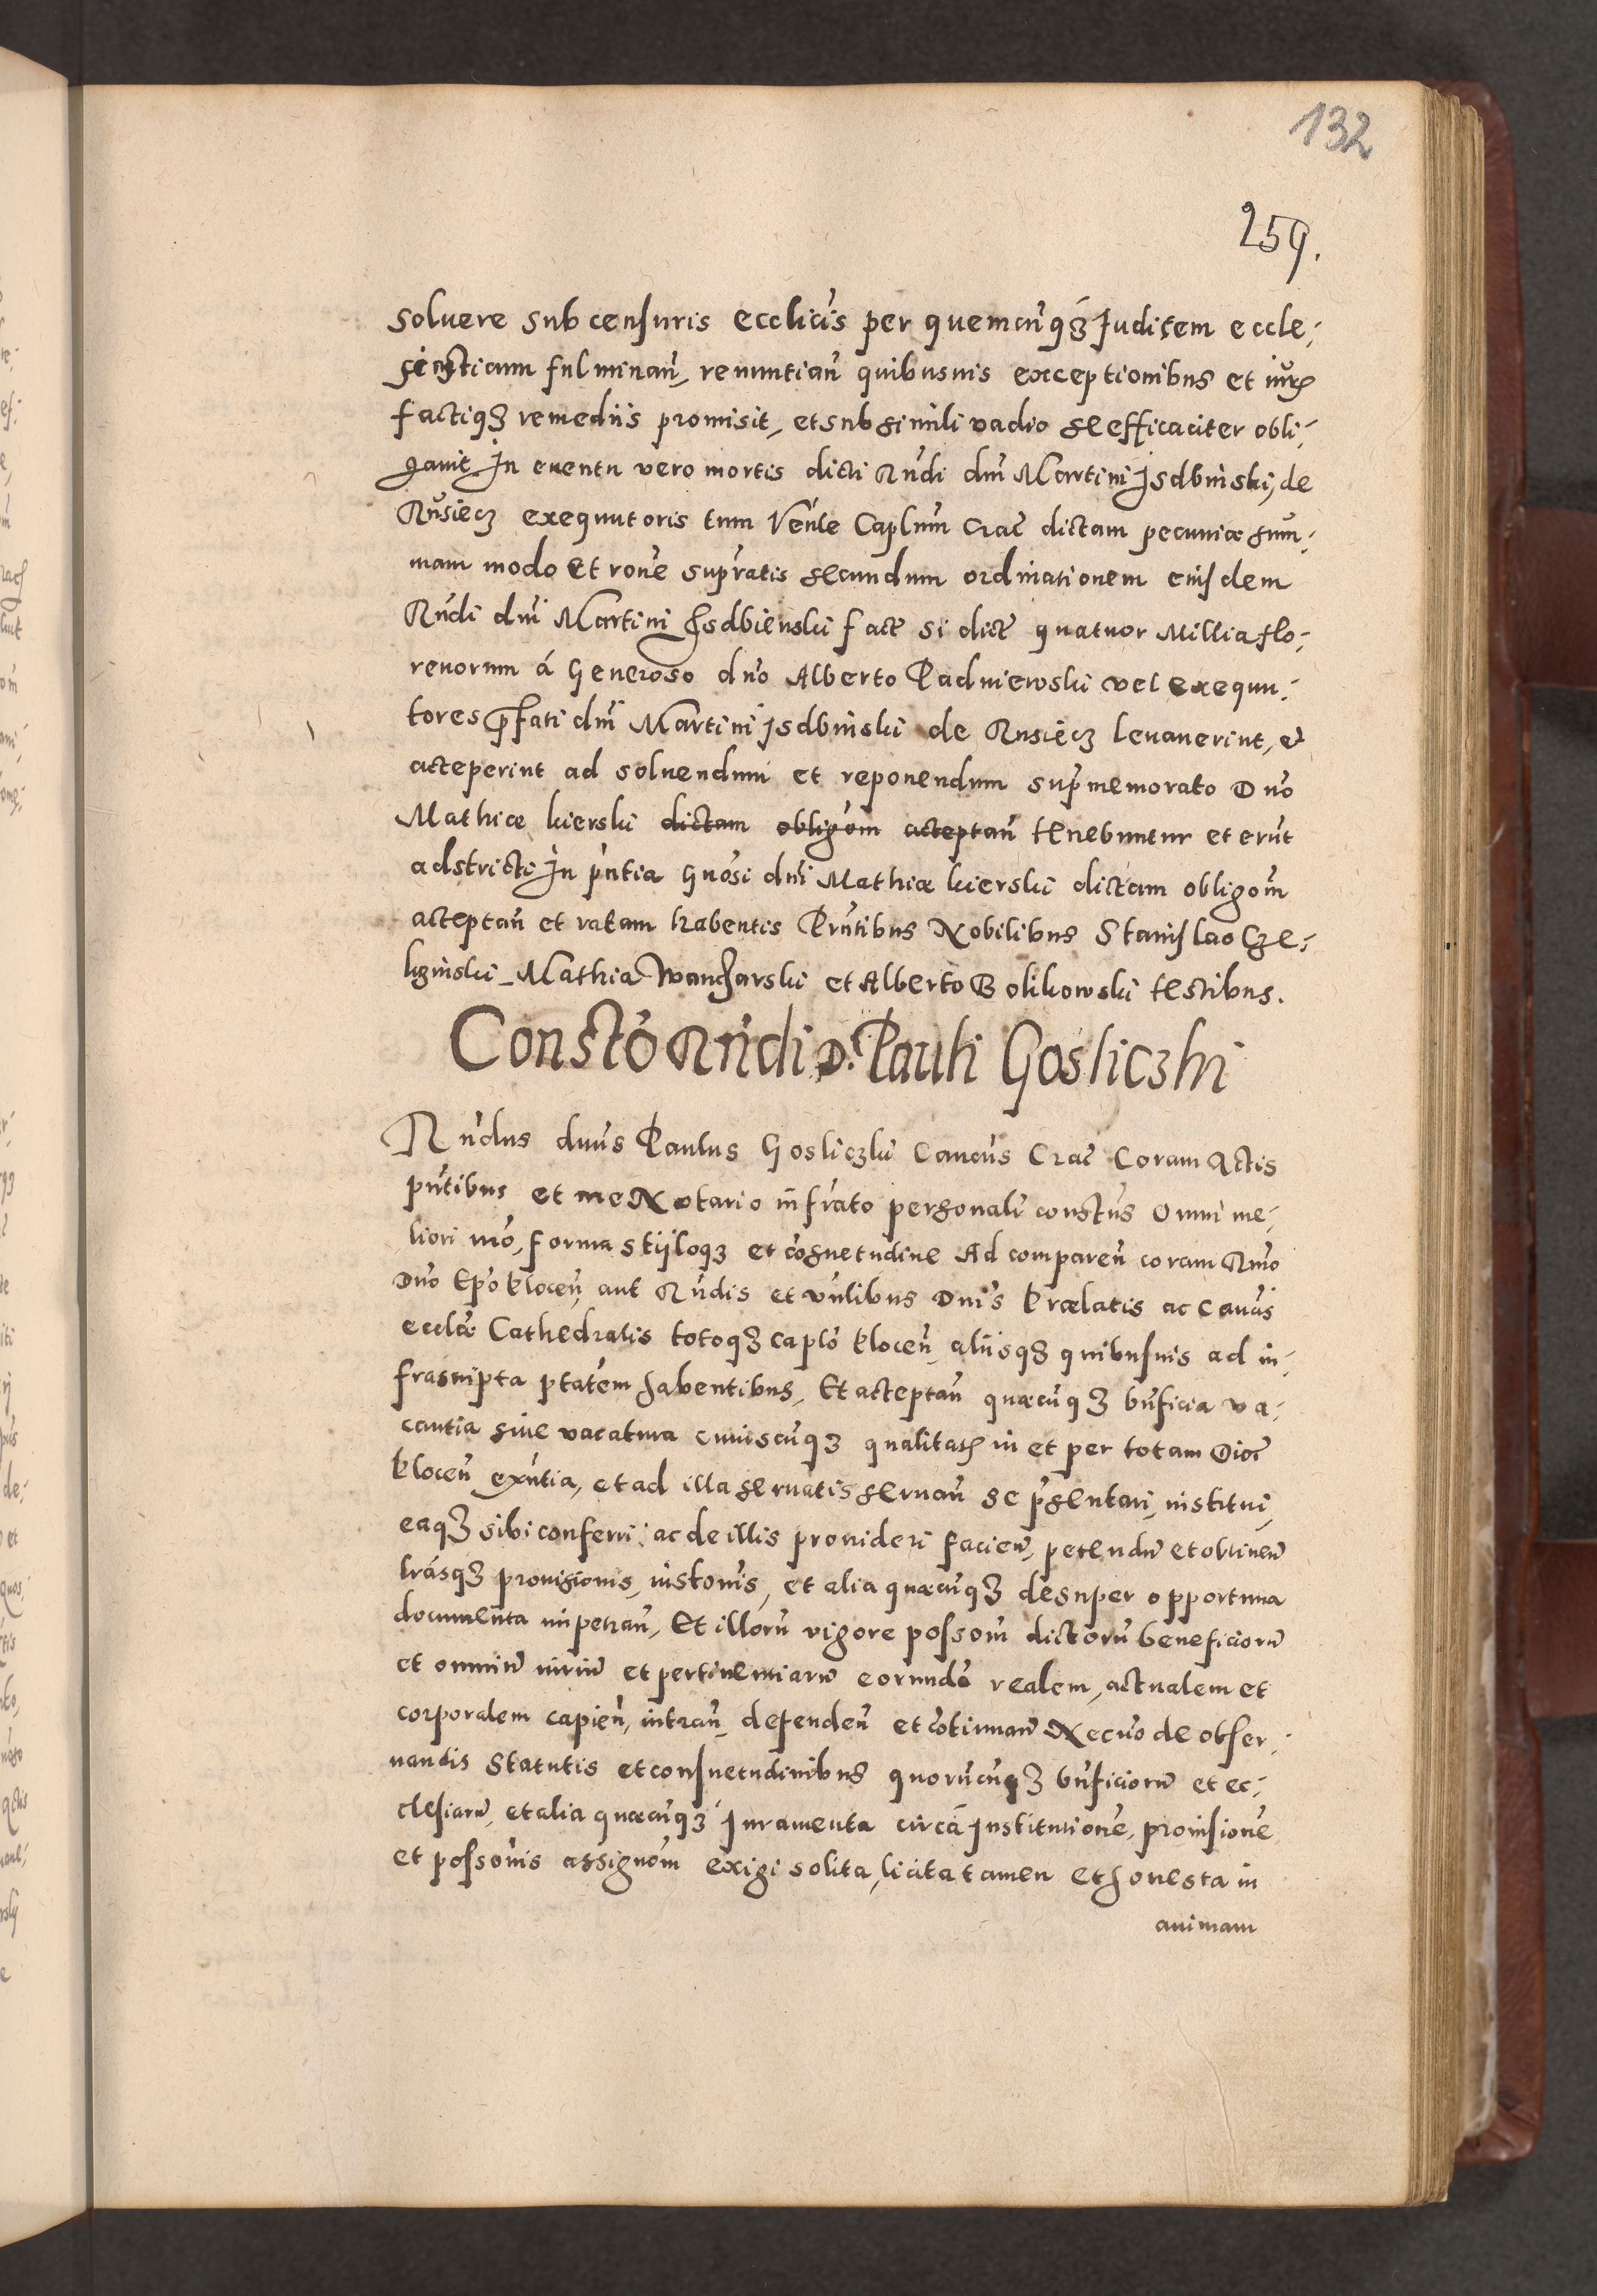 132
259.
soluere sub censuris ecclicis per quemcunqꝫ Iudicem eccle-
siasticum fulminan̄, renuntian̄ quibusuis exceptionibus et iur̄
factiqꝫ remediis promisit, et sub simili vadio se efficaciter obli-
gauit In euentu vero mortis dicti Rn̄di dn̄i Martini Isdbinski, de
Rusiecz exequutoris tum Ven̄le Caplum Crac̄ dictam pecuniæ sum-
mam modo et rōne supratis secundum ordinationem eiusdem
Rn̄di dn̄i Martini Isdbienski fact̄ si dict̄ quatuor Millia flo-
renorum á Generoso dn̄o Alberto Padniewski vel exequu-
tores p̄fati dn̄i Martini Isdbinski de Rusiecz leuauerint, et
acceperint ad soluendum et reponendum sup̄memorato Dn̄o
Mathiæ kierski dictam obligōm acceptan̄ tenebuntur et erūt
adstricti In p̄ntia Gnōsi dn̄i Mathiæ kierski dictam obligōm
acceptan̄ et ratam habentis Pn̄tibus Nobilibus Stanislao Cze-
liginski Mathia Wancharski et Alberto Bolikowski testibus.
Constō Rn̄di D. Pauli Gosliczki
Rn̄dus dn̄us Paulus Gosliczki Cancūs Crac̄ Coram Actis
pn̄tibus et me Notario infrāto personalr̄ constūs Omni me-
liori mō, forma stijloqꝫ et cōsuetudine Ad comparen̄ coram Rm̄o
Dn̄o Epō Plocen̄ aut Rn̄dis et vn̄libus Dnīs Prælatis ac Canc̄is
ecclæ Cathedralis totoqꝫ caplō Plocen̄, aliisqꝫ quibusuis ad in-
frascripta ptatem habentibus, Et acceptan̄ quæcūqꝫ bn̄ficia va-
cantia siue vacatura cuiuscūqꝫ qualitat̄ in et per totam Dioc̄
Plocen̄ exn̄tia, et ad illa seruatis seruan̄ se p̄sentari, institui,
eaqꝫ sibi conferri ac de illis prouideri facien̄, petendū et obtinen̄
lrāsqꝫ prouisionis, instōnis, et alia quæcūqꝫ desuper opportuna
documenta impetran̄, Et illorū vigore possōm dictorū beneficiorū
et omniū iuriū et pertinentiarū eorundē realem, actualem et
corporalem capien̄, intran̄, defenden̄ et cōtinuan̄ Necnō de obser-
uandis Statutis et consuetudinibus quorūcūqꝫ bn̄ficiorū et ec-
clesiarū, et alia quæcūqꝫ Iuramenta circa Institutionē, prouisionē
et possōnis assignōm exigi solita, licita tamen et honesta in
animam